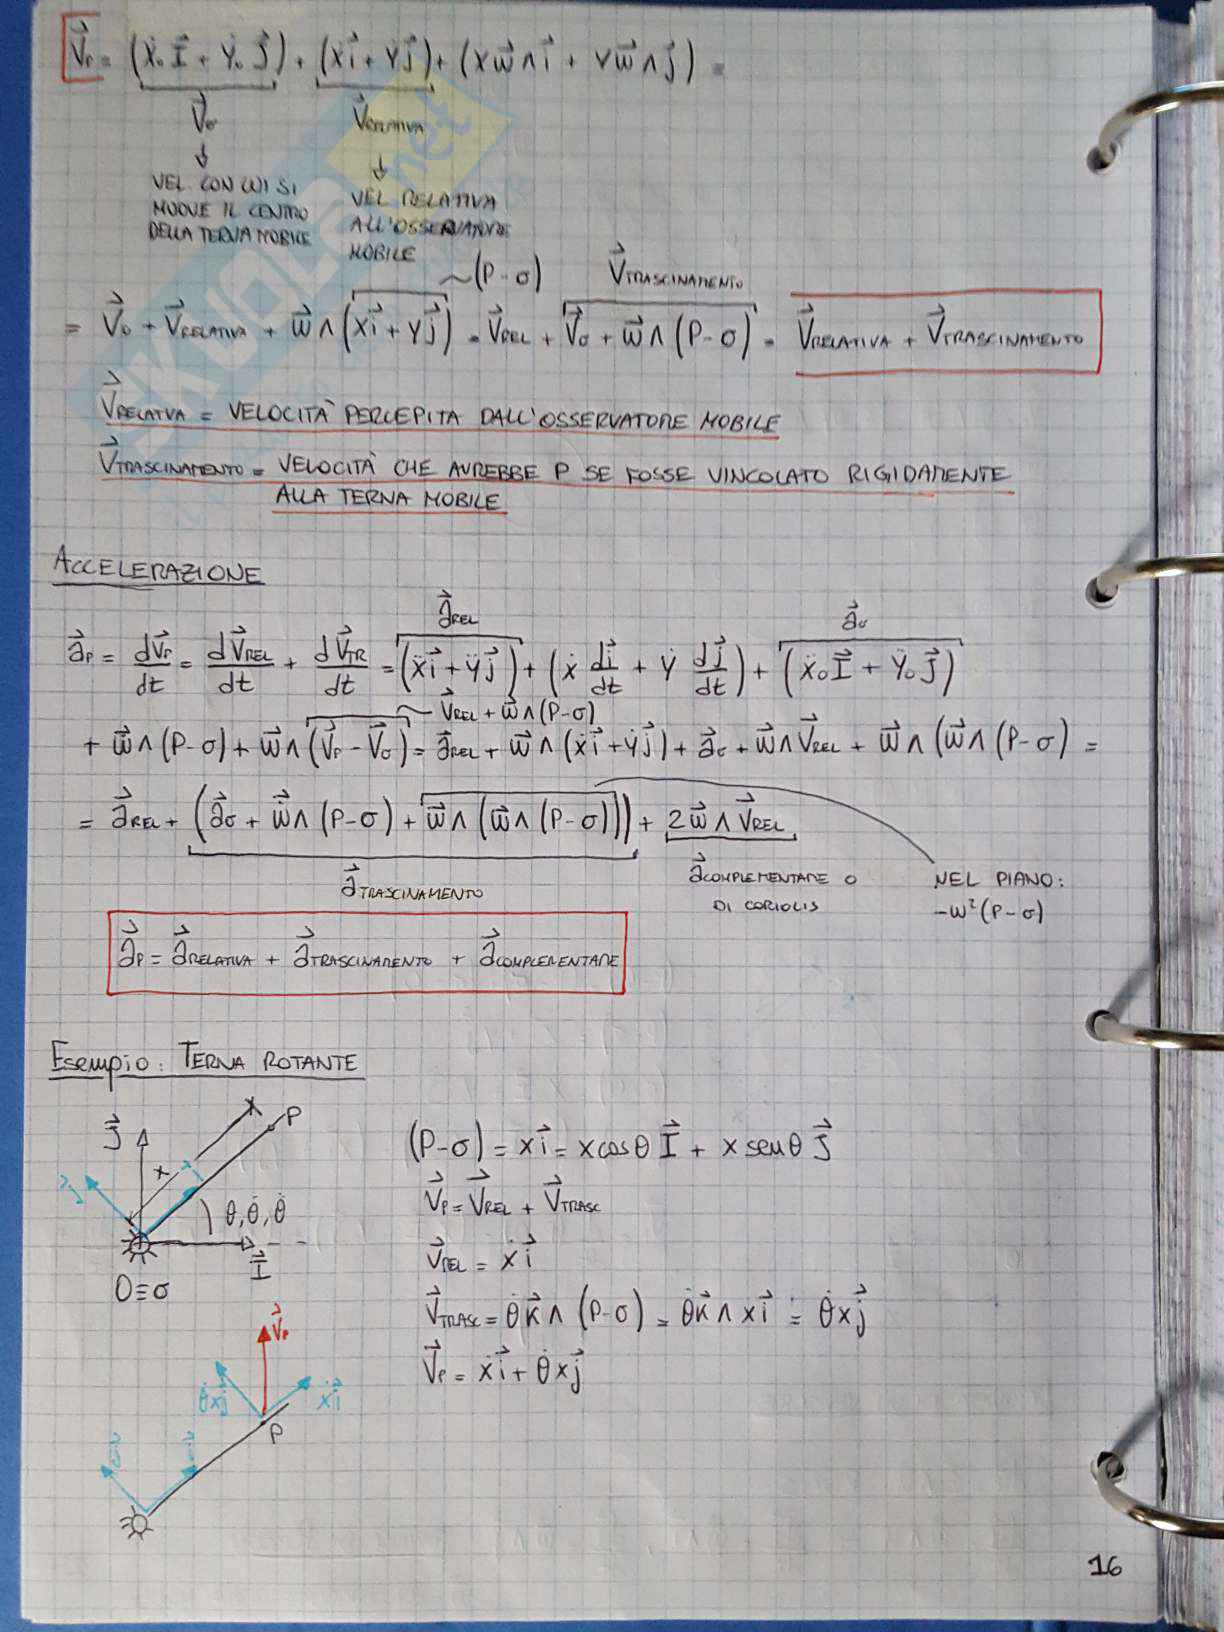 V⃗P = (Ẋ₀ I⃗ + Ẏ₀ J⃗) + (ẋ i⃗ + ẏ j⃗) + (x ω⃗ ∧ i⃗ + y ω⃗ ∧ j⃗) =
V⃗σ V⃗RELATIVA
VEL. CON CUI SI
MUOVE IL CENTRO
DELLA TERNA MOBILE
VEL RELATIVA
ALL'OSSERVATORE
MOBILE
~(P-σ) V⃗TRASCINAMENTO
= V⃗σ + V⃗RELATIVA + ω⃗ ∧ (x i⃗ + y j⃗) = V⃗REL + V⃗σ + ω⃗ ∧ (P-σ) = V⃗RELATIVA + V⃗TRASCINAMENTO
V⃗RELATIVA = VELOCITÀ PERCEPITA DALL'OSSERVATORE MOBILE
V⃗TRASCINAMENTO = VELOCITÀ CHE AVREBBE P SE FOSSE VINCOLATO RIGIDAMENTE
ALLA TERNA MOBILE
ACCELERAZIONE
a⃗REL a⃗σ
a⃗P = dV⃗P/dt = dV⃗REL/dt + dV⃗TR/dt = (ẍ i⃗ + ÿ j⃗) + (ẋ di⃗/dt + ẏ dj⃗/dt) + (Ẍ₀ I⃗ + Ÿ₀ J⃗)
~ V⃗REL + ω⃗ ∧ (P-σ)
+ ω⃗̇ ∧ (P-σ) + ω⃗ ∧ (V⃗P - V⃗σ) = a⃗REL + ω⃗ ∧ (ẋ i⃗ + ẏ j⃗) + a⃗σ + ω⃗ ∧ V⃗REL + ω⃗ ∧ (ω⃗ ∧ (P-σ) =
= a⃗REL + (a⃗σ + ω⃗̇ ∧ (P-σ) + ω⃗ ∧ (ω⃗ ∧ (P-σ))) + 2 ω⃗ ∧ V⃗REL
a⃗TRASCINAMENTO
a⃗COMPLEMENTARE O
DI CORIOLIS
NEL PIANO:
-ω²(P-σ)
a⃗P = a⃗RELATIVA + a⃗TRASCINAMENTO + a⃗COMPLEMENTARE
Esempio: TERNA ROTANTE
J⃗
P
x
j⃗
i⃗
θ, θ̇, θ̈
I⃗
O≡σ
(P-σ) = x i⃗ = x cosθ I⃗ + x senθ J⃗
V⃗P = V⃗REL + V⃗TRASC
V⃗REL = ẋ i⃗
V⃗TRASC = θ̇ K⃗ ∧ (P-σ) = θ̇ K⃗ ∧ x i⃗ = θ̇ x j⃗
V⃗P = ẋ i⃗ + θ̇ x j⃗
V⃗P
θ̇ x j⃗
ẋ i⃗
P
j⃗
i⃗
16
SKUOLA.net